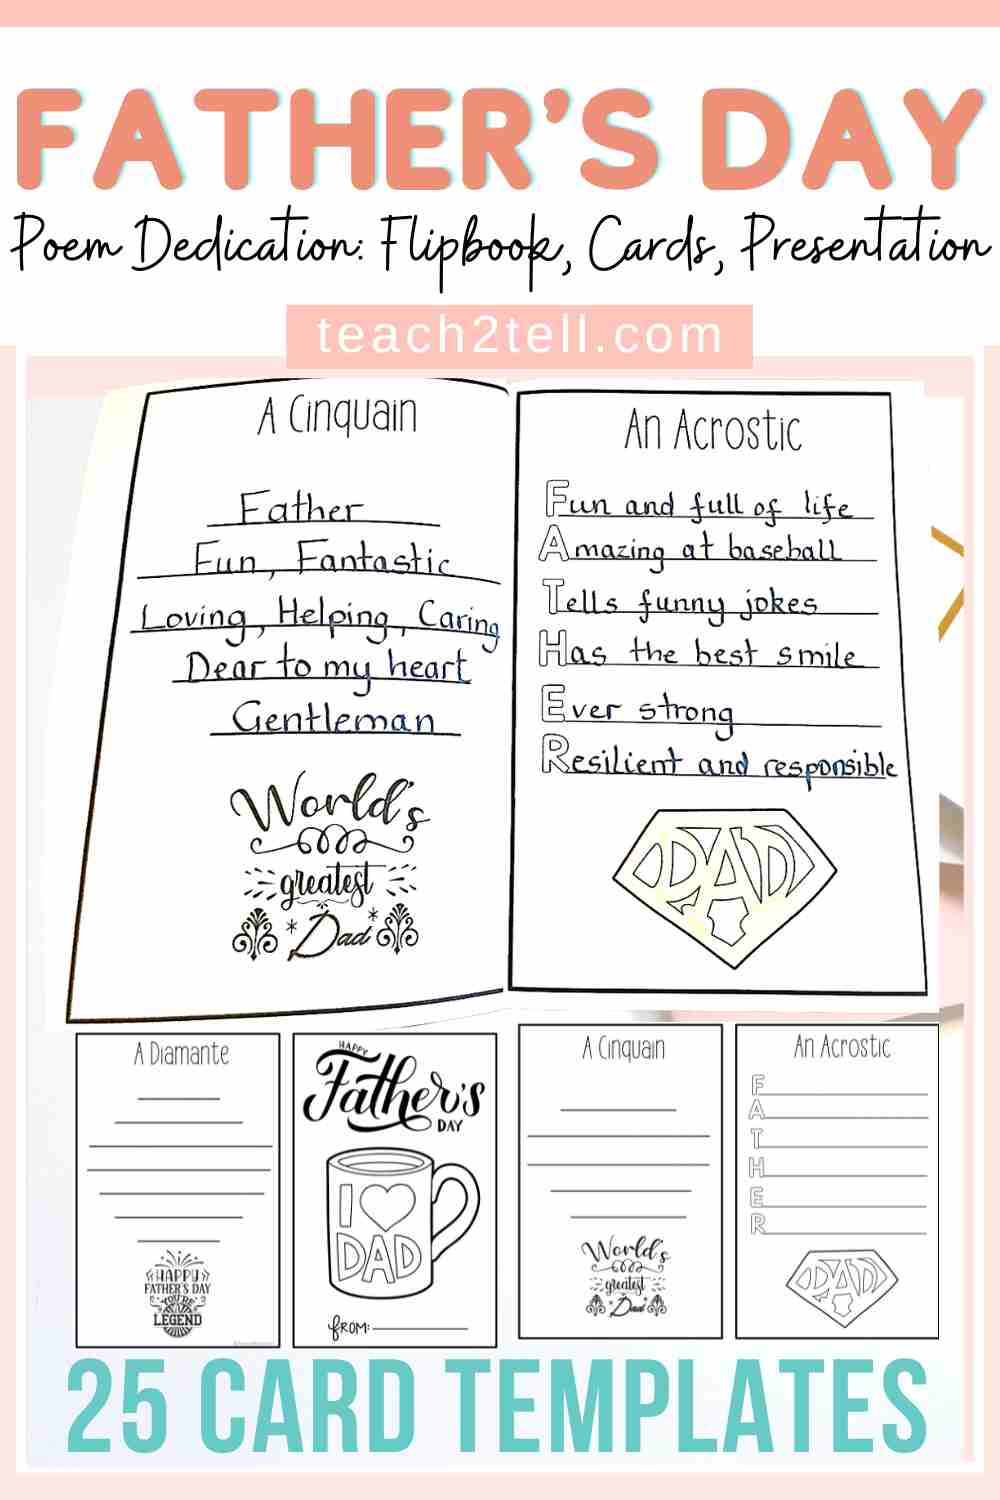 FATHER'S DAY
Poem Dedication: Flipbook, Cards, Presentation
teach2tell.com
A Cinquain
Father
Fun, Fantastic
Loving, Helping, Caring
Dear to my heart
Gentleman
World's
greatest
Dad
An Acrostic
Fun and full of life
Amazing at baseball
Tells funny jokes
Has the best smile
Ever strong
Resilient and responsible
DAD
A Diamante
HAPPY
FATHER'S DAY
YOU'RE
LEGEND
HAPPY
Father's
DAY
I
DAD
FROM:
A Cinquain
World's
greatest
Dad
An Acrostic
F
A
T
H
E
R
DAD
25 CARD TEMPLATES